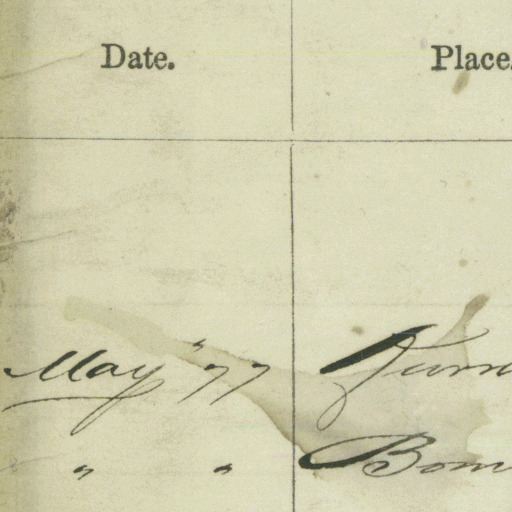 Date. Place.
May "77
" " Bom